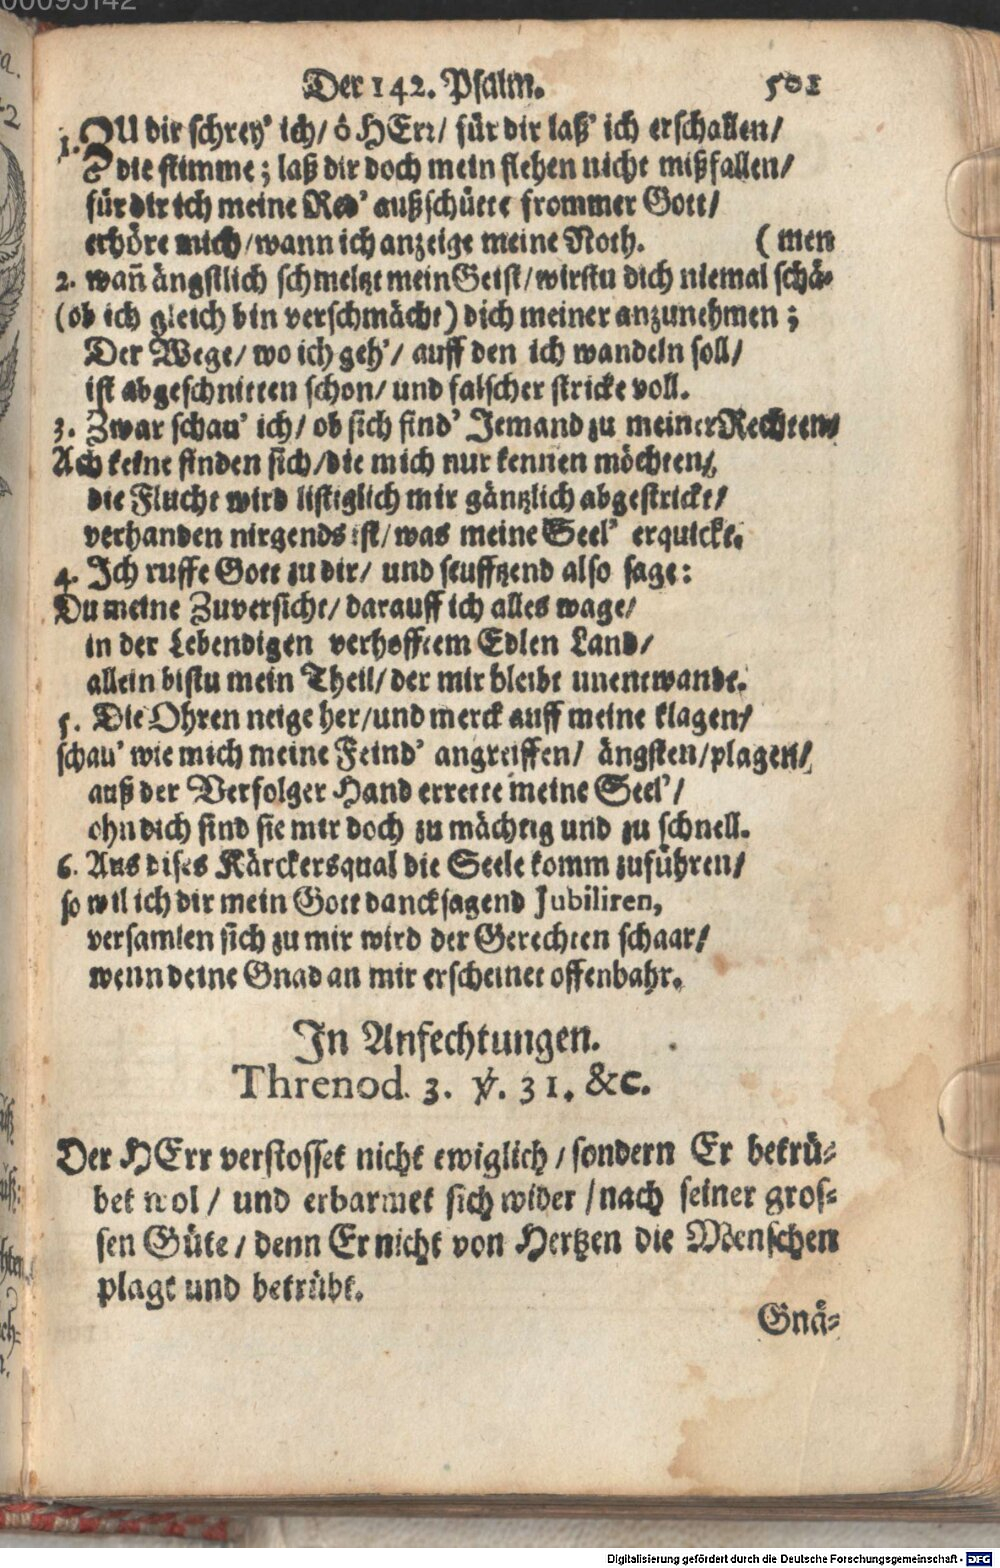 00095142
Der 142. Psalm. 501
1. ZU dir schrey' ich/ ô HErr/ für dir laß' ich erschallen/
die stimme; laß dir doch mein flehen nicht mißfallen/
für dir ich meine Red' außschütte frommer Gott/
erhöre mich/wann ich anzeige meine Noth. (men
2. wañ ängstlich schmeltzt mein Geist/wirstu dich niemal schä-
(ob ich gleich bin verschmächt) dich meiner anzunehmen;
Der Wege/ wo ich geh'/ auff den ich wandeln soll/
ist abgeschnitten schon/ und falscher stricke voll.
3. Zwar schau' ich/ ob sich find' Jemand zu meiner Rechten/
Ach keine finden sich/die mich nur kennen möchten/
die Flucht wird listiglich mir gäntzlich abgestrickt/
verhanden nirgends ist/was meine Seel' erquickt.
4. Ich ruffe Gott zu dir/ und seufftzend also sage:
Du meine Zuversicht/ darauff ich alles wage/
in der Lebendigen verhofftem Edlen Land/
allein bistu mein Theil/ der mir bleibt unentwandt.
5. Die Ohren neige her/und merck auff meine klagen/
schau' wie mich meine Feind' angreiffen/ ängsten/plagen/
auß der Verfolger Hand errette meine Seel'/
ohn dich sind sie mir doch zu mächtig und zu schnell.
6. Aus dises Kärckersqual die Seele komm zuführen/
so wil ich dir mein Gott dancksagend Jubiliren,
versamlen sich zu mir wird der Gerechten schaar/
wenn deine Gnad an mir erscheinet offenbahr.
In Anfechtungen.
Threnod. 3. ℣. 31. &c.
Der HErr verstosset nicht ewiglich/sondern Er betrü-
bet wol/ und erbarmet sich wider/nach seiner gros-
sen Güte/ denn Er nicht von Hertzen die Menschen
plagt und betrübt.
Gnä-
Digitalisierung gefördert durch die Deutsche Forschungsgemeinschaft - DFG